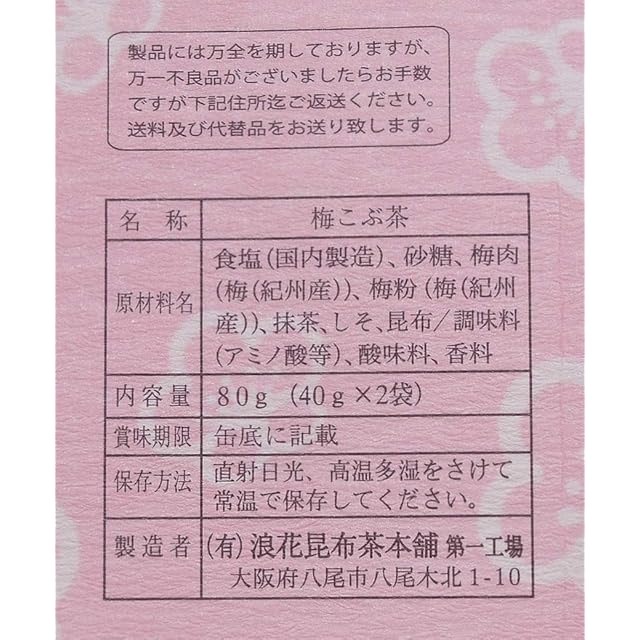 製品には万全を期しておりますが、
万一不良品がございましたらお手数
ですが下記住所迄ご返送ください。
送料及び代替品をお送り致します。
名称 梅こぶ茶
原材料名 食塩(国内製造)、砂糖、梅肉
(梅(紀州産))、梅粉(梅(紀州
産))、抹茶、しそ、昆布/調味料
(アミノ酸等)、酸味料、香料
内容量 80g (40g×2袋)
賞味期限 缶底に記載
保存方法 直射日光、高温多湿をさけて
常温で保存してください。
製造者 (有)浪花昆布茶本舗 第一工場
大阪府八尾市八尾木北1-10